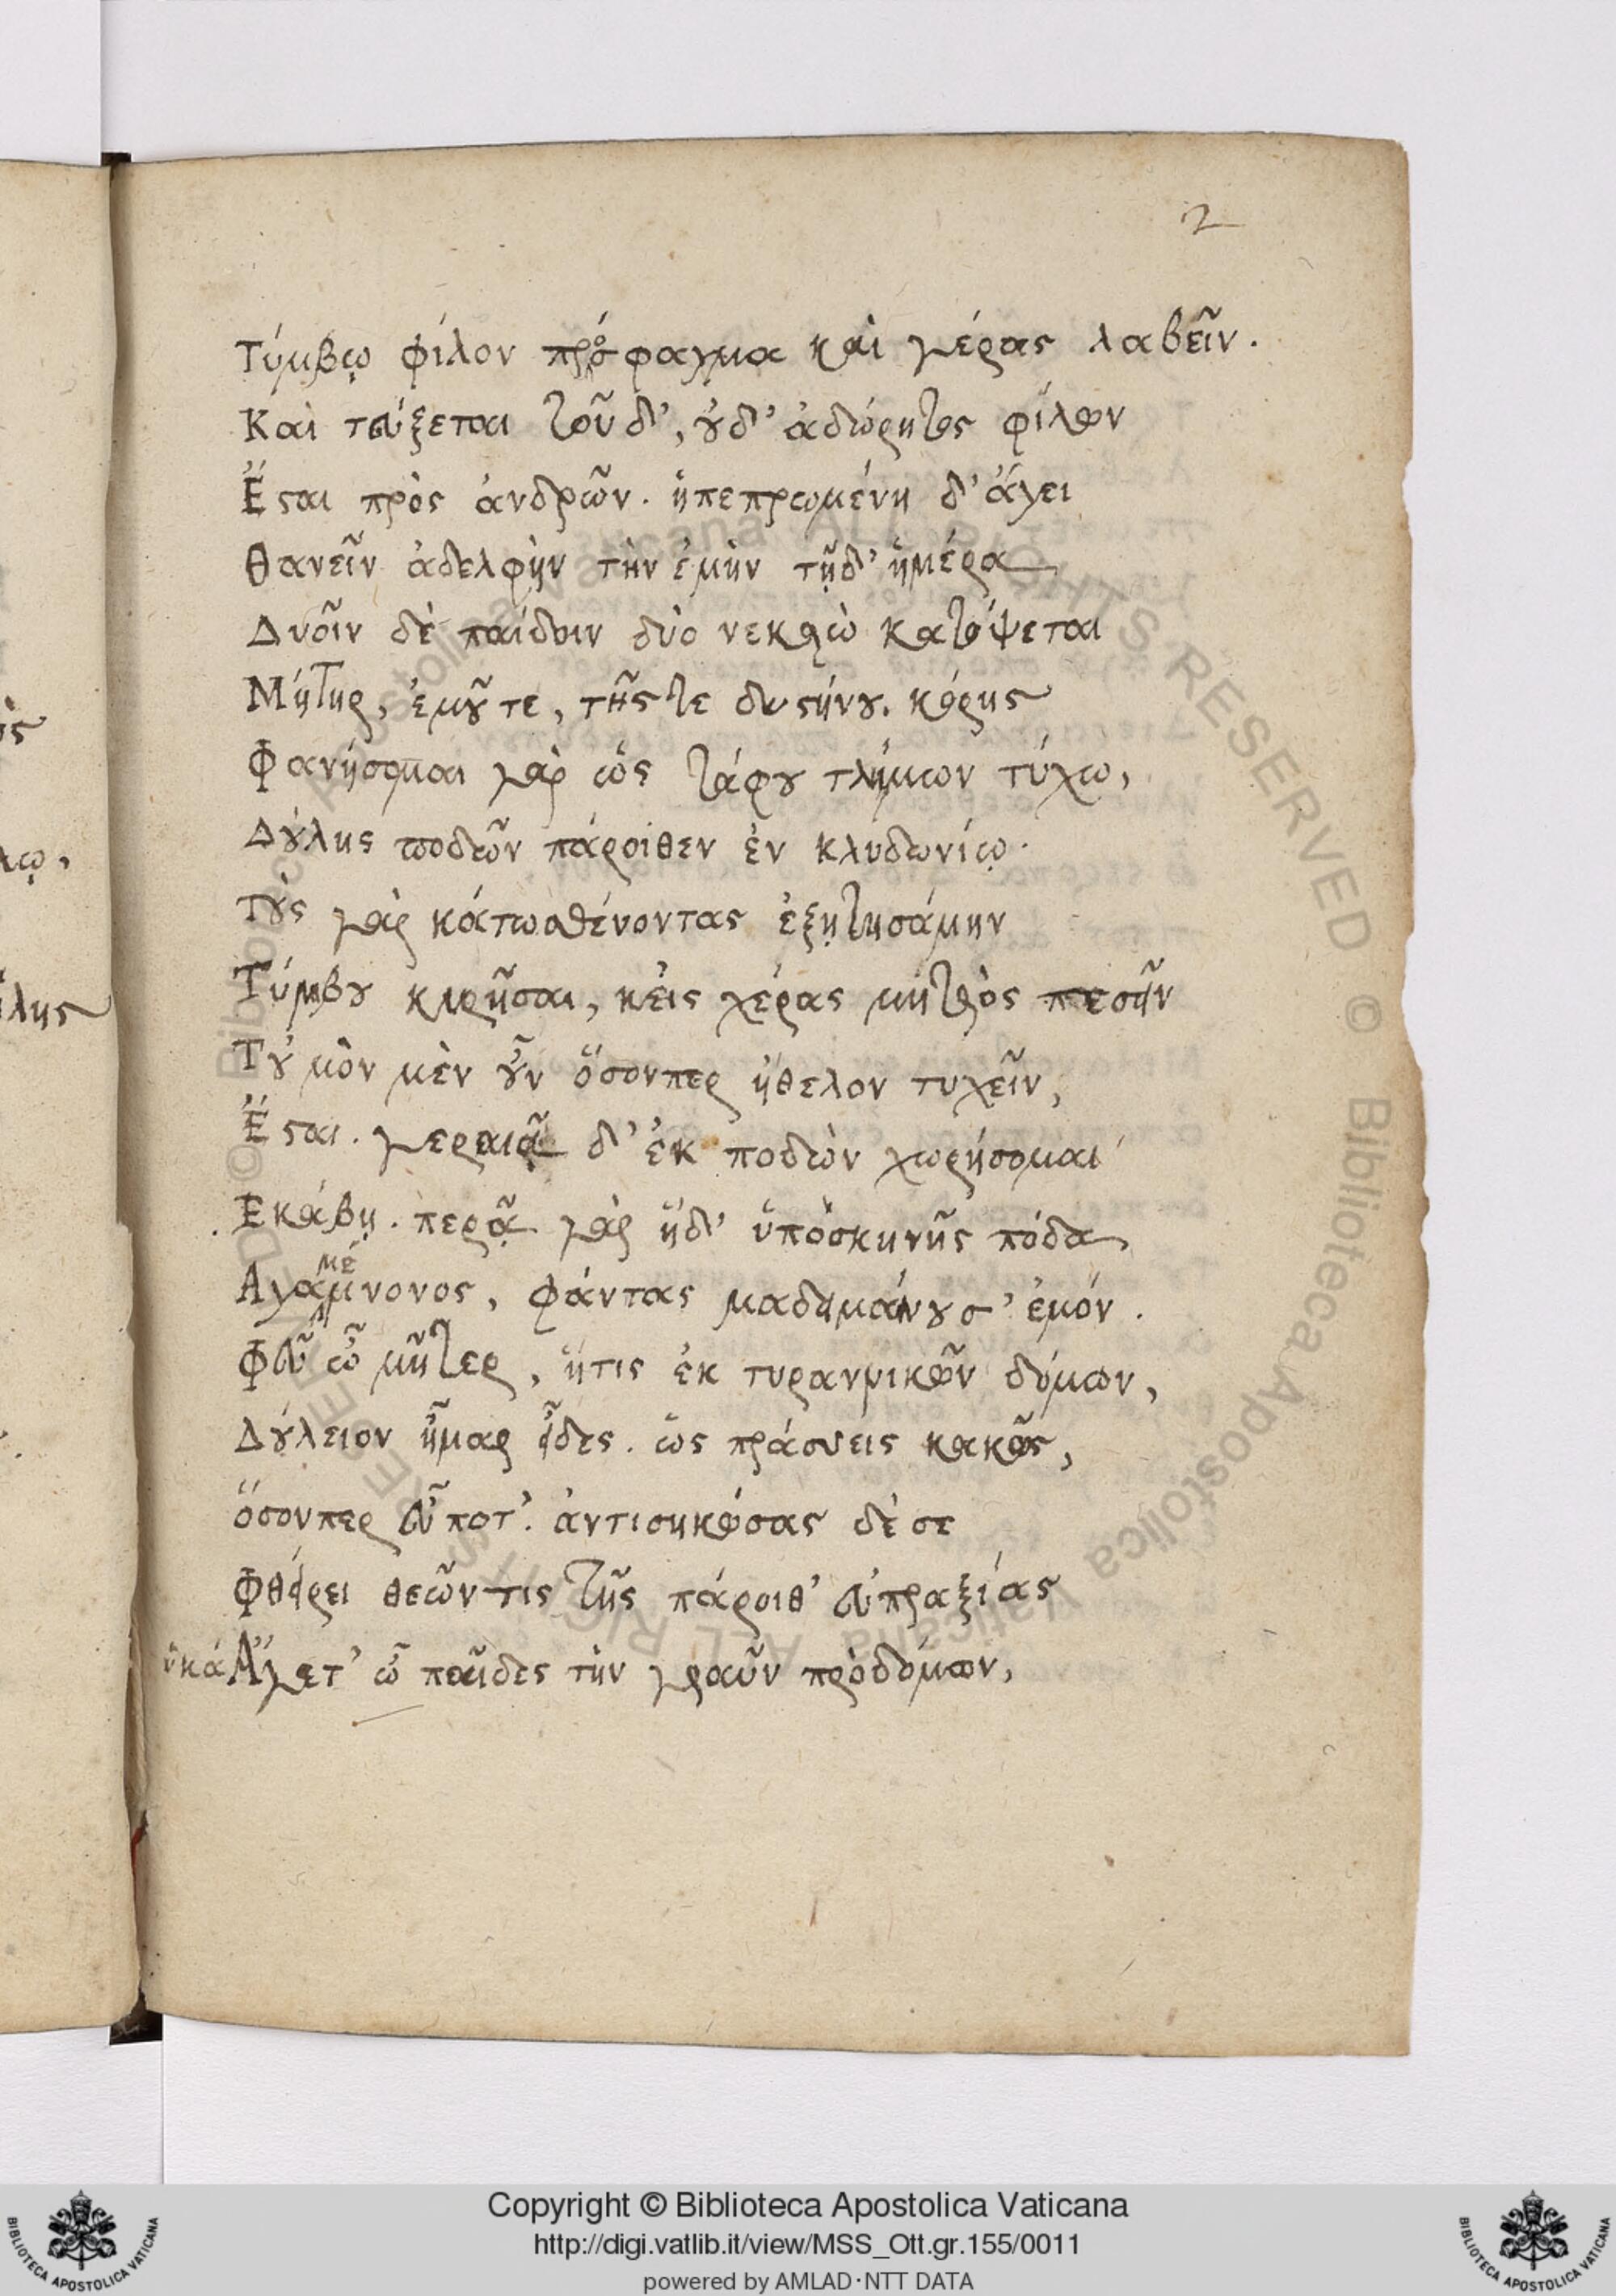 2
Τύμβῳ φίλον πρόσφαγμα καὶ γέρας λαβεῖν.
Καὶ τεύξεται τοῦδ', οὐδ' ἀδώρητος φίλων
Ἔσται πρὸς ἀνδρῶν. ἡπεπρωμένη δ' ἄγει
Θανεῖν ἀδελφὴν τὴν ἐμὴν τῇδ' ἡμέρα
Δυοῖν δὲ παίδοιν δύο νεκρὼ κατόψεται
Μήτηρ, ἐμοῦ τε, τῆς τε δυστήνου κόρης
Φανήσομαι γὰρ ὡς τάφου τλήμων τύχω,
Δούλης ποδῶν πάροιθεν ἐν κλυδωνίῳ.
Τοὺς γὰρ κάτωσθένοντας ἐξῃτησάμην
Τύμβου κυρῆσαι, κεἰς χέρας μητρὸς πεσεῖν
Τοὐμὸν μὲν οὖν ὅσονπερ ἤθελον τυχεῖν,
Ἔσται. γεραιᾷ δ' ἐκ ποδὼν χωρήσομαι
Εκάβῃ. περᾷ γὰρ ἥδ' ὑπὸσκηνῆς πόδα
Αγαμέμνονος, φάντασμα δειμαίνουσ' ἐμόν.
Φεῦ ὦ μῆτερ, ἥτις ἐκ τυραννικῶν δόμων,
Δούλειον ἦμαρ εἶδες. ὡς πράσσεις κακῶς,
ὅσονπερ εὖ ποτ'. ἀντισηκώσας δέ σε
Φθείρει θεῶν τις τῆς πάροιθ' εὐπραξίας
ἑκά Ἄγετ' ὦ παῖδες τὴν γραῦν πρὸδόμων,
Copyright © Biblioteca Apostolica Vaticana
http://digi.vatlib.it/view/MSS_Ott.gr.155/0011
powered by AMLAD·NTT DATA